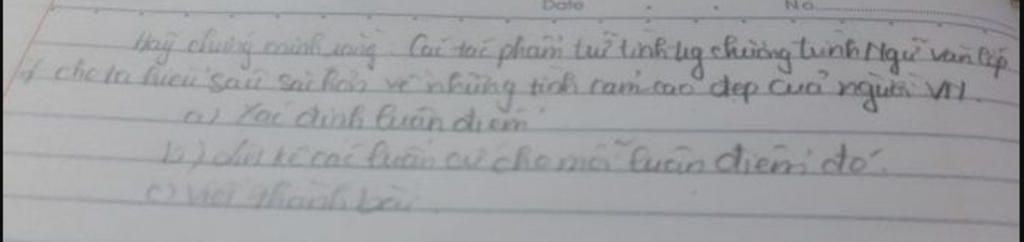 Date No
Hãy chứng minh rằng. Các tác phẩm trữ tình trg chương trình Ngữ văn lớp
7 cho ta hiểu sâu sắc hơn về những tình cảm cao đẹp của người VN.
a) Xác định luận điểm
b) các luận cứ cho mỗi luận điểm đó.
c) Viết thành bài.